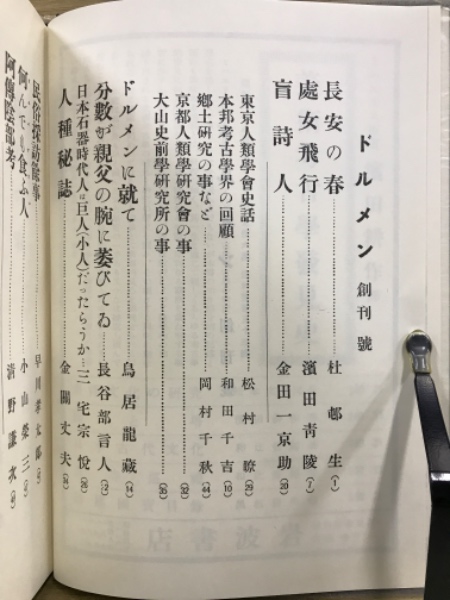 ドルメン 創刊號
長安の春……杜邨生(1)
處女飛行……濱田靑陵(7)
盲詩人……金田一京助(20)
東京人類學會史話……松村瞭(29)
本邦考古學界の回顧……和田千吉(10)
鄕土硏究の事など……岡村千秋(44)
京都人類學硏究會の事……(32)
大山史前學硏究所の事……(35)
ドルメンに就て……鳥居龍藏(14)
分數が親父の腕に萎びてゐ……長谷部言人(2)
日本石器時代人は巨人(小人)だったらうか…三宅宗悅(26)
人種秘誌……金關丈夫(16)
民俗採訪餘事……早川孝太郎
何んでも食ふ人……小山榮三
阿傳陰部考……淸野謙次